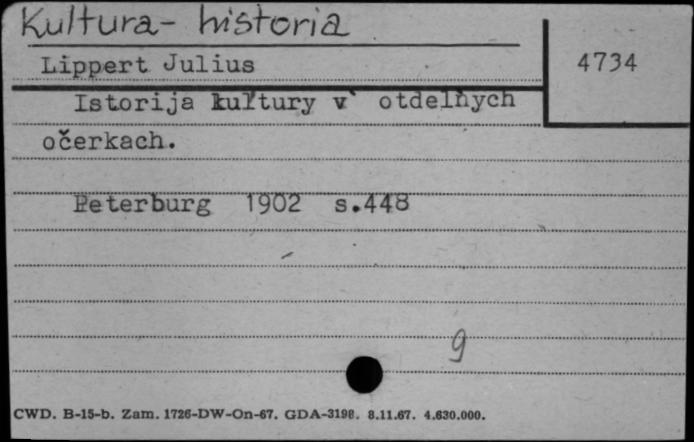 Kultura- historia
Lippert Julius
4734
Istorija kul'tury v otdel'nych
očerkach.
Peterburg 1902 s.448
9
CWD. B-15-b. Zam. 1726-DW-On-67. GDA-3198. 8.11.67. 4.630.000.